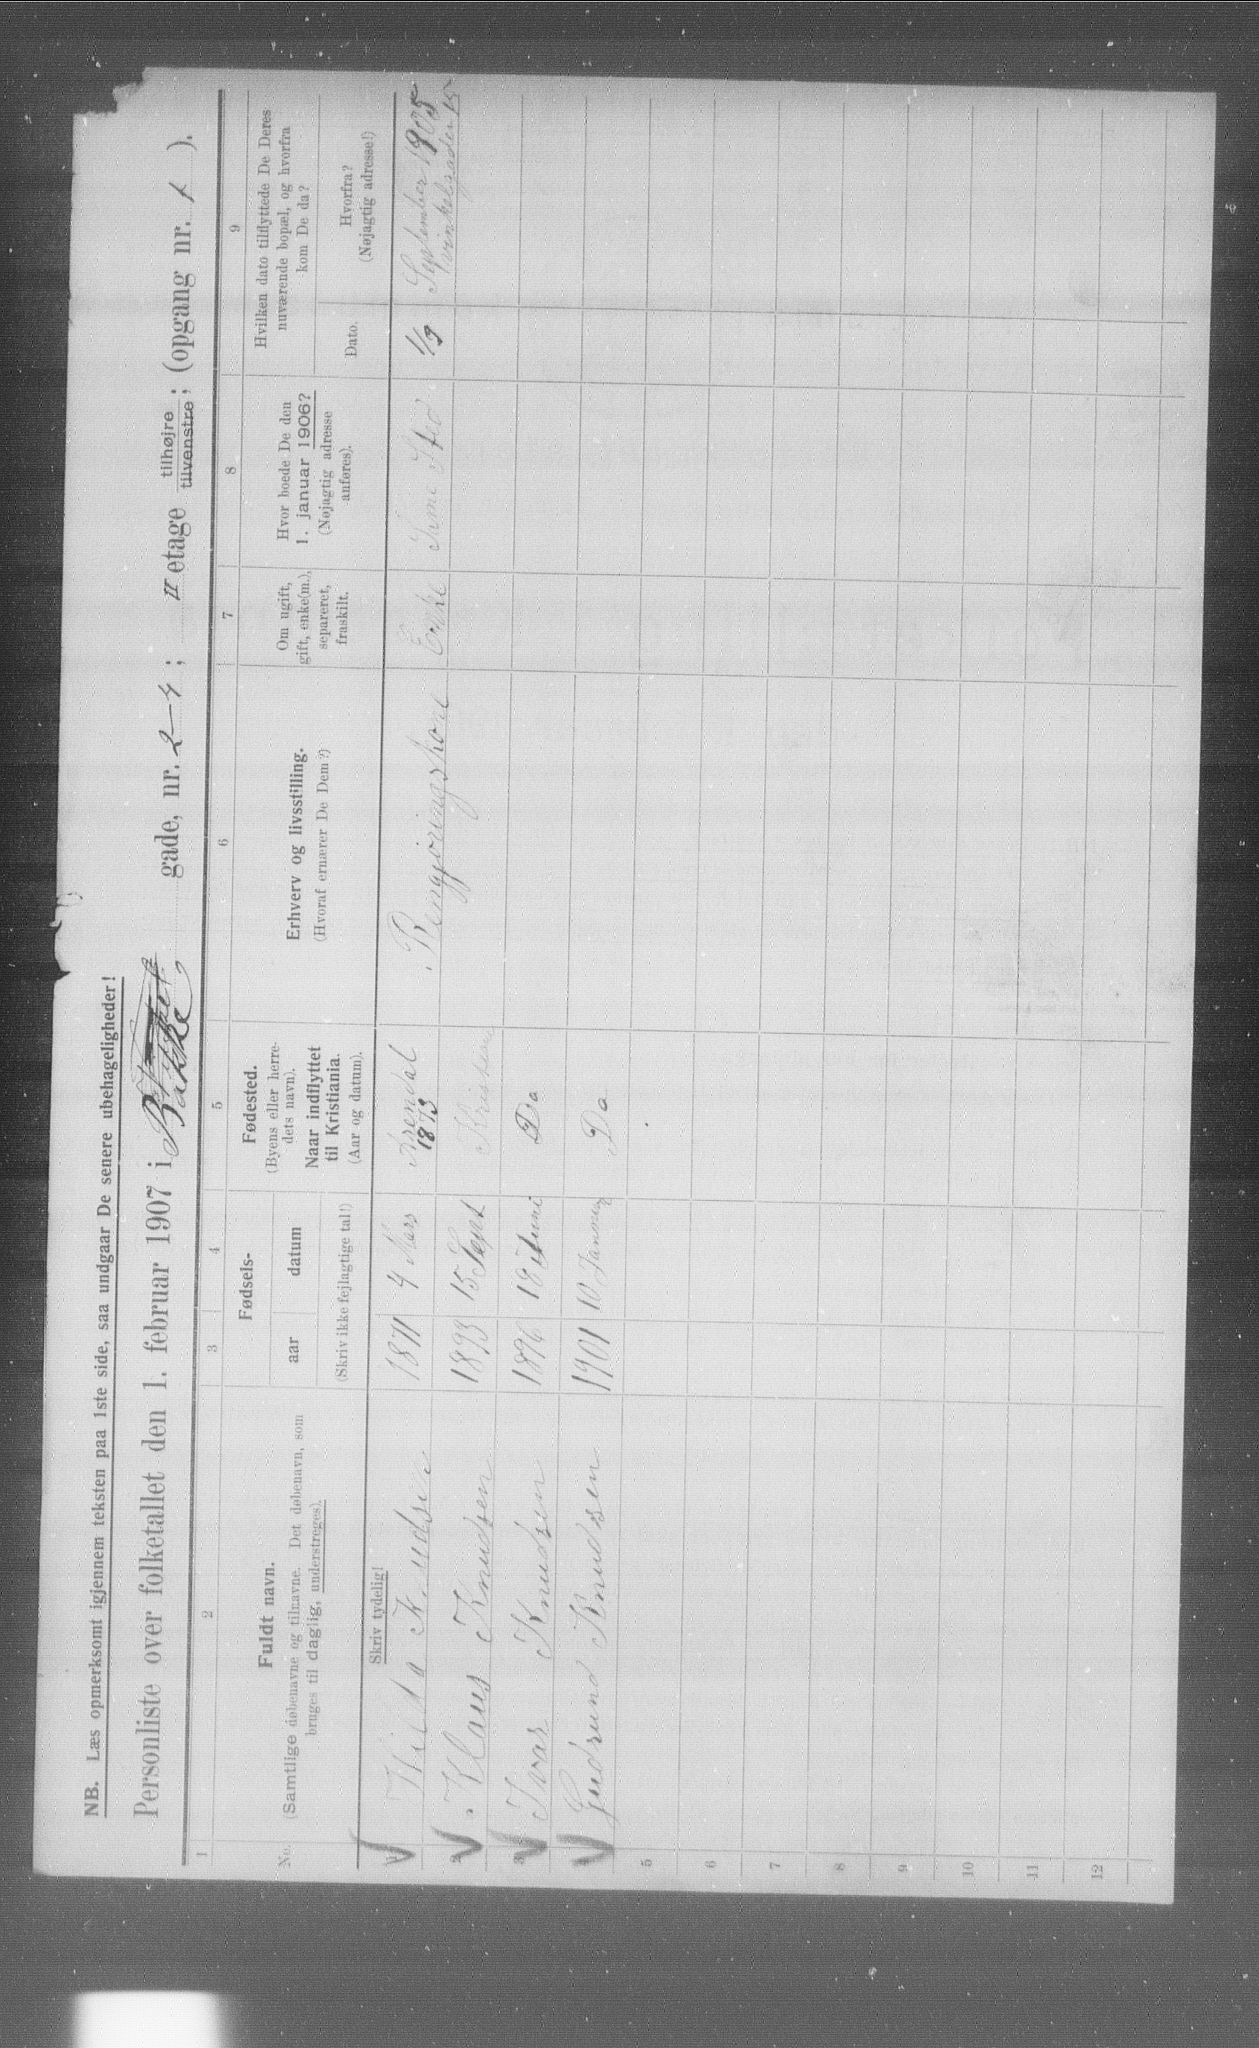 NB. Læs opmerksomt igjennem teksten paa 1ste side, saa undgaar De senere ubehageligheder!
Personliste over folketallet den 1. februar 1907 i Bakke gade, nr. 2-4; II etage tilhøjre tilvenstre; (opgang nr. 1 ).
1 2 3 4 5 6 7 8 9
No.
Fuldt navn.
(Samtlige døbenavne og tilnavne. Det døbenavn, som
bruges til daglig, understreges).
Skriv tydelig!
Fødsels-
aar datum
(Skriv ikke fejlagtige tal!)
Fødested.
(Byens eller herre-
dets navn).
Naar indflyttet
til Kristiania.
(Aar og datum).
Erhverv og livsstilling.
(Hvoraf ernærer De Dem?)
Om ugift,
gift, enke(m.),
separeret,
fraskilt.
Hvor boede De den
1. januar 1906?
(Nøjagtig adresse
anføres).
Hvilken dato tilflyttede De Deres
nuværende bopæl, og hvorfra
kom De da?
Dato.
Hvorfra?
(Nøjagtig adresse!)
1 Hilda Knudsen 1871 4 Mars Arendal 1893 Rengjøringskone Enke Sme Sted 1/9 September 1905
2 Klaus Knudsen 1893 15 Sept
3 Ivar Knudsen 1896 18 Juni Do
4 Gudrund Knudsen 1901 10 Januar Do
5
6
7
8
9
10
11
12